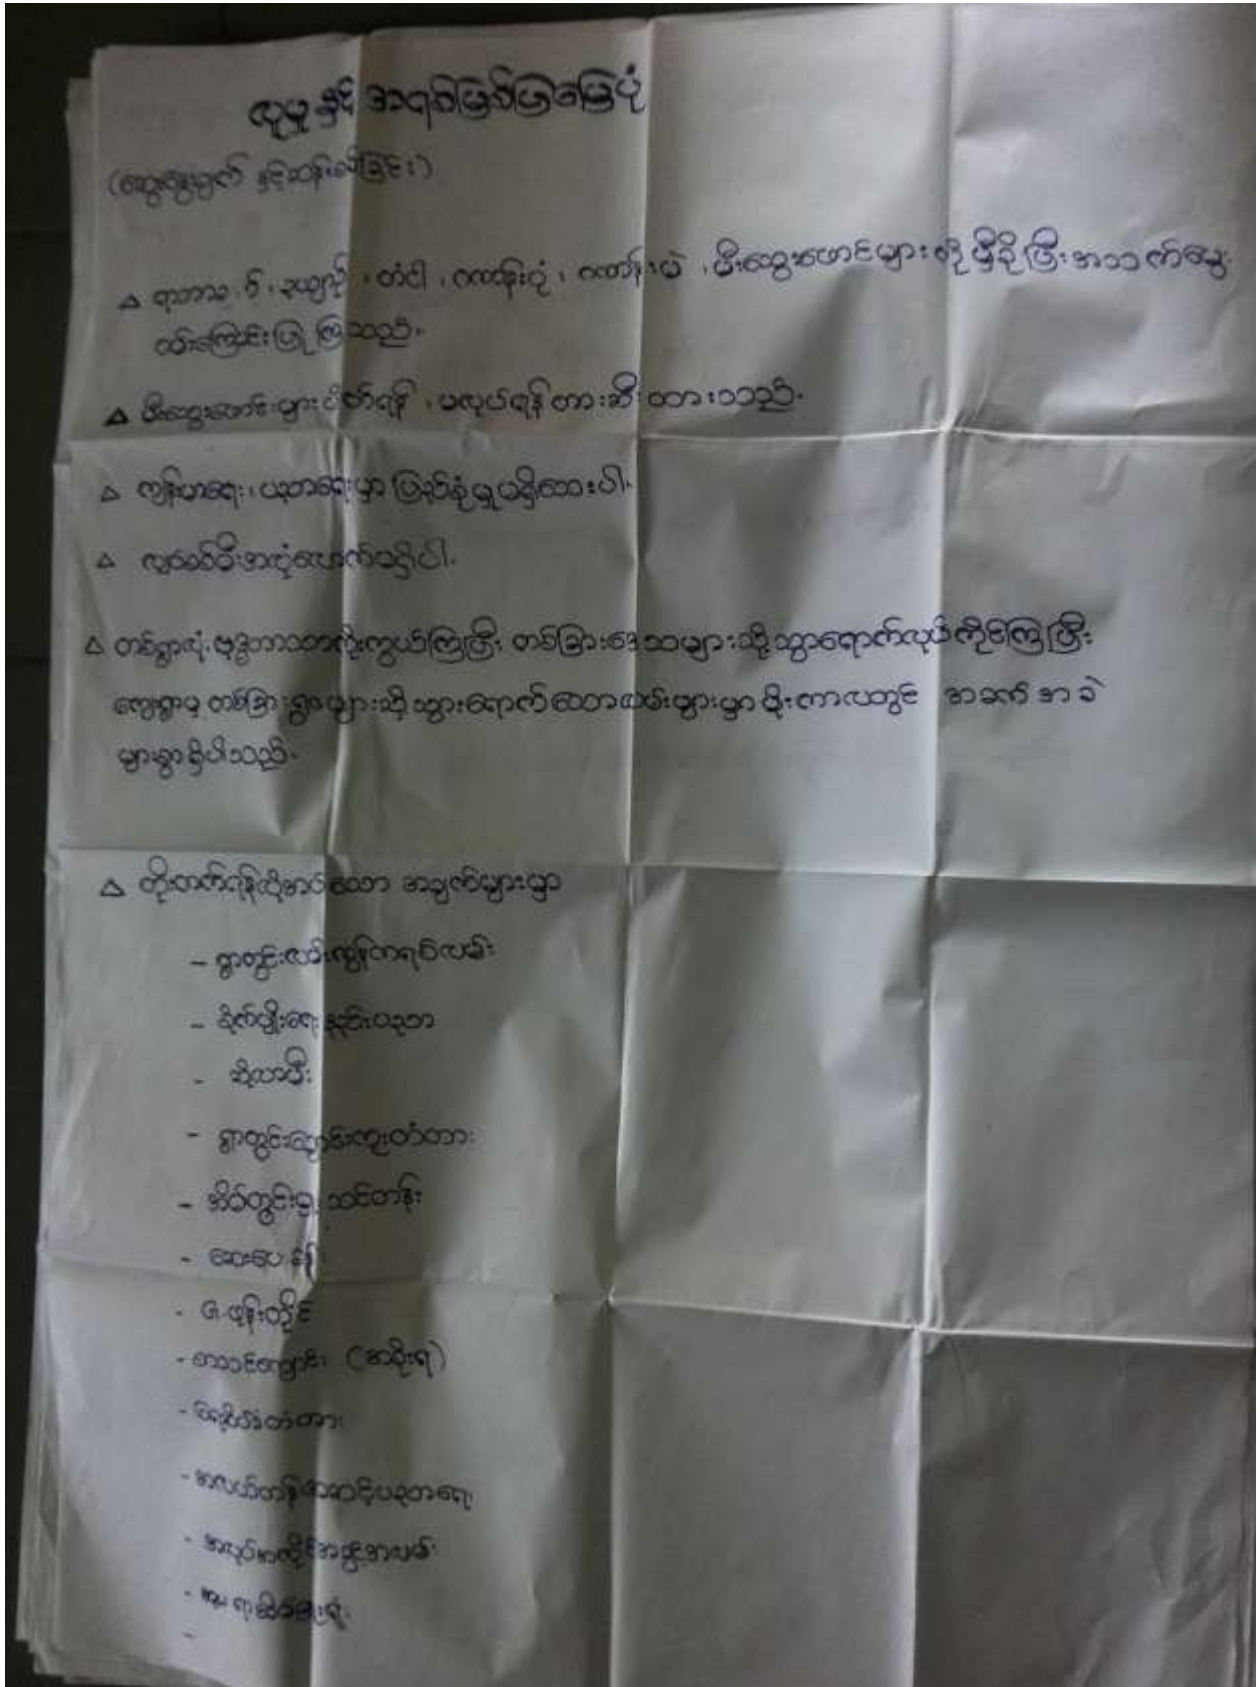 လူမှု နှင့် အရင်းမြစ်ပြမြေပုံ
(ဆွေးနွေးချက် နှင့်ဆန်းစစ်ခြင်း)
△ ရာဘာ၊ တံငါ၊ ဂဏန်းပုံး၊ ဂဏန်းမဲ၊ မီးသွေးဖောင်များကို မှီခိုပြီးအသက်မွေး
ဝမ်းကြောင်းပြုကြသည်။
△ မီးသွေးဖောင်းများပိတ်ရန်၊ မလုပ်ရန်တားဆီးထားသည်။
△ ကျန်းမာရေး၊ ပညာရေးမှာ ပြည့်စုံမှုမရှိသေးပါ။
△ လျှပ်စစ်မီးအလုံလောက်မရှိပါ။
△ တစ်ရွာလုံး ဗုဒ္ဓဘာသာကိုးကွယ်ကြပြီး တစ်ခြားဒေသများသို့သွားရောက်လုပ်ကိုင်ကြပြီး
ကျေးရွာမှ တစ်ခြားရွာများသို့သွားရောက်သောလမ်းများမှာ မိုးကာလတွင် အခက်အခဲ
များစွာရှိပါသည်။
△ တိုးတက်ရန်လိုအပ်သော အချက်များမှာ
- ရွာတွင်းလမ်းကွန်ကရစ်လမ်း
- စိုက်ပျိုးရေးနည်းပညာ
- ဆိုလာမီး
- ရွာတွင်းချောင်းကူးတံတား
- အိပ်တွင်းမှု သင်တန်း
- ဆေးပေးခန်း
- ဖုန်းတိုင်
- စာသင်ကျောင်း (အစိုးရ)
- ရေဆိပ်ခံတံတား
- အလယ်တန်းအဆင့်ပညာရေး
- အလုပ်အကိုင်အခွင့်အလမ်း
-